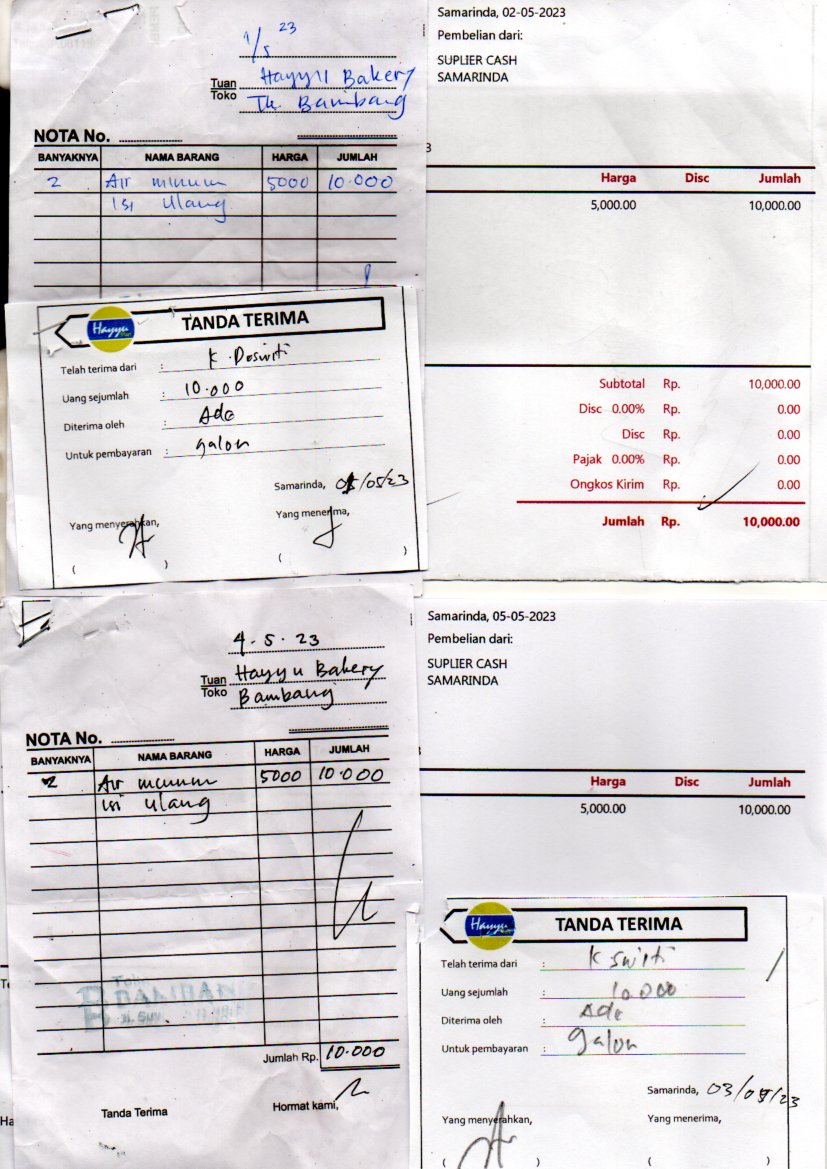 1/5 23
Tuan Hayyu Bakery
Toko Tk. Bambang
NOTA No.
BANYAKNYA NAMA BARANG HARGA JUMLAH
2 Air minum 5000 10.000
isi ulang
Hayyu
TANDA TERIMA
Telah terima dari :
Uang sejumlah : 10.000
Diterima oleh : Ade
Untuk pembayaran : galon
Samarinda, /05/23
Yang menyerahkan, Yang menerima,
( ) ( )
Samarinda, 02-05-2023
Pembelian dari:
SUPLIER CASH
SAMARINDA
3
Harga Disc Jumlah
5,000.00 10,000.00
Subtotal Rp. 10,000.00
Disc 0.00% Rp. 0.00
Disc Rp. 0.00
Pajak 0.00% Rp. 0.00
Ongkos Kirim Rp. 0.00
Jumlah Rp. 10,000.00
4.5.23
Tuan Hayyu Bakery
Toko Bambang
NOTA No.
BANYAKNYA NAMA BARANG HARGA JUMLAH
2 Air minum 5000 10.000
isi ulang
Jumlah Rp. 10.000
Tanda Terima Hormat kami,
Samarinda, 05-05-2023
Pembelian dari:
SUPLIER CASH
SAMARINDA
Harga Disc Jumlah
5,000.00 10,000.00
Hayyu
TANDA TERIMA
Telah terima dari :
Uang sejumlah : 10.000
Diterima oleh : Ade
Untuk pembayaran : galon
Samarinda, 03/05/23
Yang menyerahkan, Yang menerima,
( ) ( )